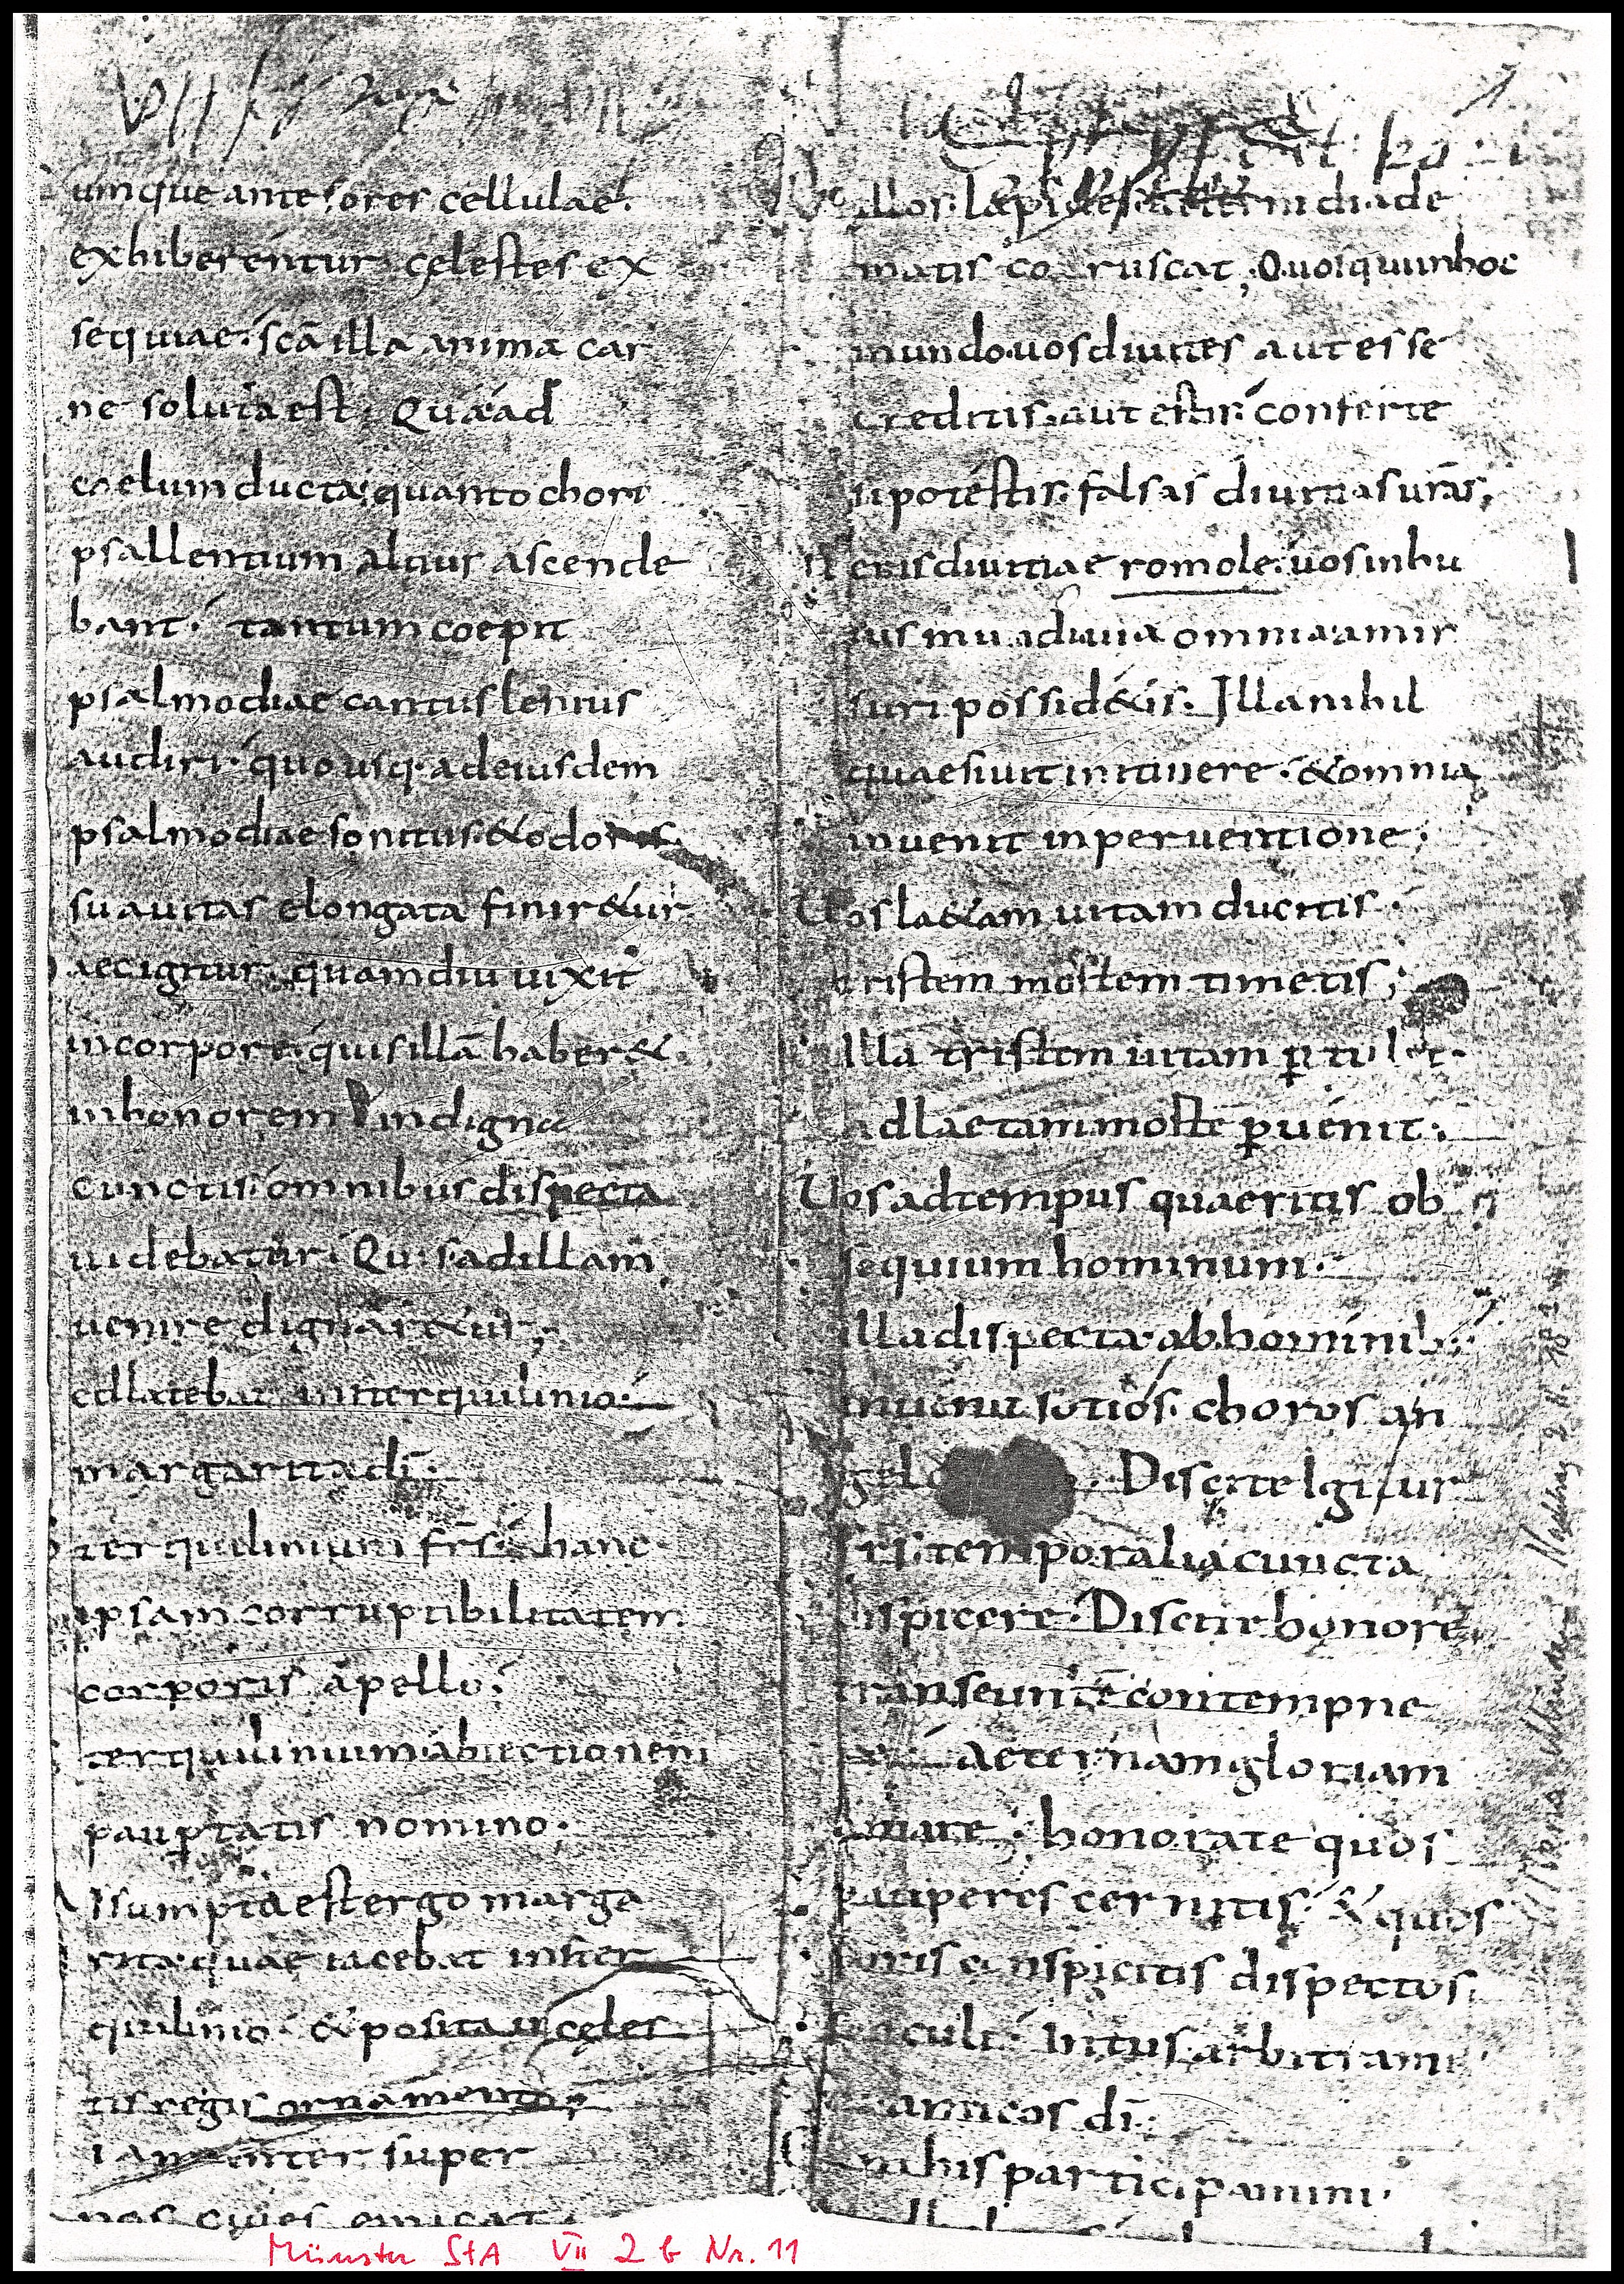 umque ante fores cellulae.
exhiberentur celestes ex
sequiae. scā illa anima car
ne soluta est. Qua ad
coelum ducta quanto chori
psallentium altius ascende
bant. tantum coepit
psalmodiae cantus lenius
audiri. quousq. adeiusdem
psalmodiae sonitus. & odoris
suauitas elongata finir&ur.
aec igitur quamdiu uixit
incorpore. quis illā haber&
inhonorem indigna
cunctis. omnibus dispecta
uidebatur. Quis adillam
uenire dignar&ur;
edlatebat insterquilinio.
margarita dī.
terquilinium frs. hanc
ipsam corruptibilitatem
corporis apello.
terquilinium abiectionem
paupertatis nomino.
Assumpta est ergo marga
rita quae iacebat inster
quilinio. & posita in celes
tis regis ornamento;
iam inter super
nos ciues emicat
illos lapides in diade
matis coruscat; O uos qui in hoc
mundo uos diuites aut esse
creditis. aut estis. conferte
si potestis. falsas diuitias urās,
ueris diuitiae romole. uos in hu
ius mundi uia omnia amis
suri possid&is. Illa nihil
quaesiuit in itinere. & omnia
inuenit in peruentione;
Uos la&am uitam ducitis.
tristem mortem timetis;
Illa tristem uitam ptulit.
ad laetam morte puenit.
Uos ad tempus quaeritis ob
sequium hominum.
illa dispecta ab hominib;
inuenit sotios. choros an
gelo Discite Igitur
frs. temporalia cuncta
dispicere. Discite honore
transeunte contempne
re aeternam gloriam
amate. honorate quos
pauperes cernitis. & quos
foris conspicitis dispectos
saeculi. Intus arbitrami
amicos dī.
in his participamini.
Münster StA VII 2 b Nr. 11